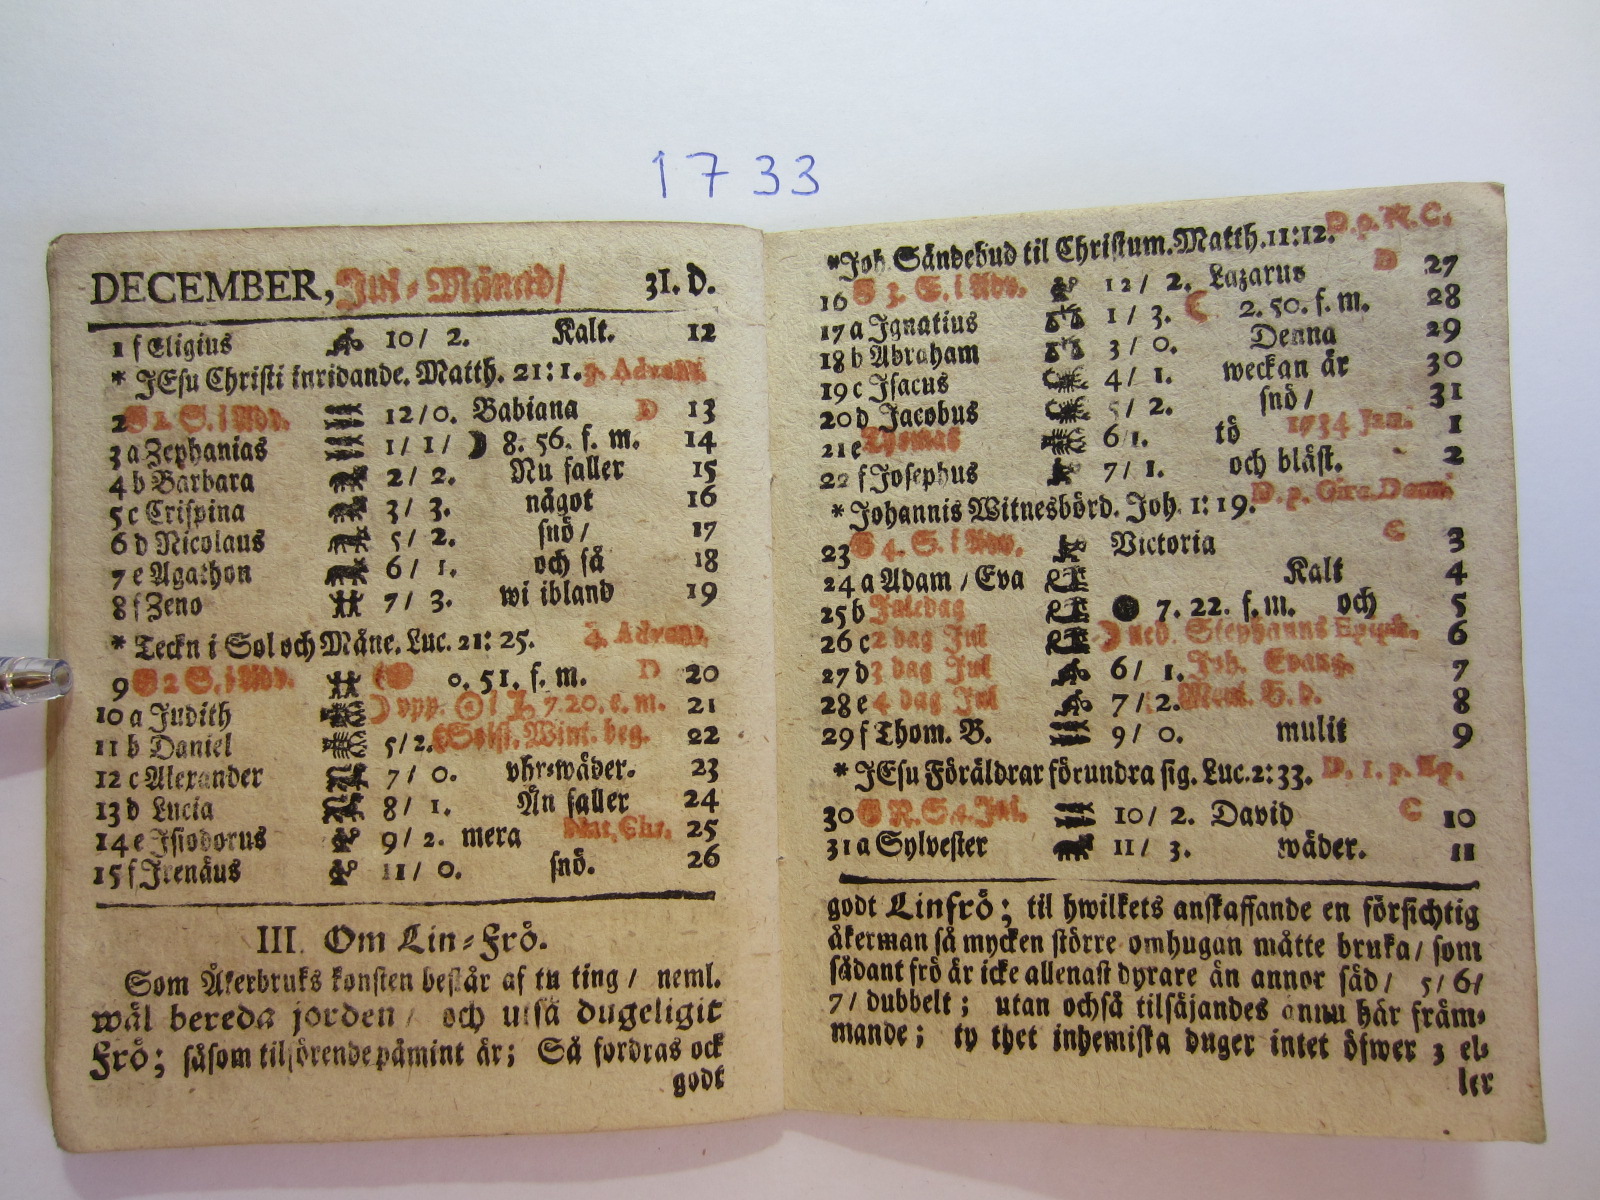 1733
DECEMBER, Jul-Månad/ 31. D.
1 f Eligius 10/ 2. Kalt. 12
* JEsu Christi inridande. Matth. 21:1. Advent
2 1. S. i Adv. 12/0. Babiana D 13
3 a Zephanias 1/ 1/ ☽ 8. 56. f. m. 14
4 b Barbara 2/ 2. Nu faller 15
5 c Crispina 3/ 3. något 16
6 d Nicolaus 5/ 2. snö/ 17
7 e Agathon 6/ 1. och så 18
8 f Zeno 7/ 3. wi ibland 19
* Teckn i Sol och Måne. Luc. 21: 25. Advent.
9 2 S. i Adv. 0. 51. f. m. D 20
10 a Judith ☽ upp. ☉ i ♑ 7.20. e. m. 21
11 b Daniel 5/2. Solst. Wint. beg. 22
12 c Alexander 7/ 0. vhr-wäder. 23
13 d Lucia 8/ 1. Än faller 24
14 e Isiodorus 9/ 2. mera Nat. Chr. 25
15 f Irenäus 11/ 0. snö. 26
III. Om Lin-Frö.
Som Åkerbruks konsten består af tu ting/ neml.
wäl bereda jorden/ och utså dugeligit
Frö; såsom tilförende påmint är; Så fordras ock
godt
*Joh. Sändebud til Christum. Matth. 11:12. D. p. N. C.
16 3. S. i Adv. 12/ 2. Lazarus D 27
17 a Ignatius 1/ 3. ☾ 2. 50. f. m. 28
18 b Abraham 3/ 0. Denna 29
19 c Isacus 4/ 1. weckan är 30
20 d Jacobus 5/ 2. snö/ 31
21 e Thomas 6/1. tö 1734 Jan. 1
22 f Josephus 7/ 1. och blåst. 2
* Johannis Witnesbörd. Joh. 1: 19. D. p. Circ. Dom.
23 4. S. i Adv. Victoria C 3
24 a Adam / Eva Kalt 4
25 b Juledag ● 7. 22. f. m. och 5
26 c 2 dag Jul ☽ ned. Stephanus Epiph. 6
27 d 3 dag Jul 6/ 1. Joh. Evang. 7
28 e 4 dag Jul 7/ 2. 8
29 f Thom. B. 9/ 0. mulit 9
* JEsu Föräldrar förundra sig. Luc. 2: 33. D. 1. p. Ep.
30 10/ 2. David C 10
31 a Sylvester 11/ 3. wäder. 11
godt Linfrö; til hwilkets anskaffande en försichtig
åkerman så mycken större omhugan måtte bruka/ som
sådant frö är icke allenast dyrare än annor säd/ 5/ 6/
7/ dubbelt; utan ochså tilsäjandes ännu här främ-
mande; ty thet inhemiska duger intet öfwer 3 el-
ler